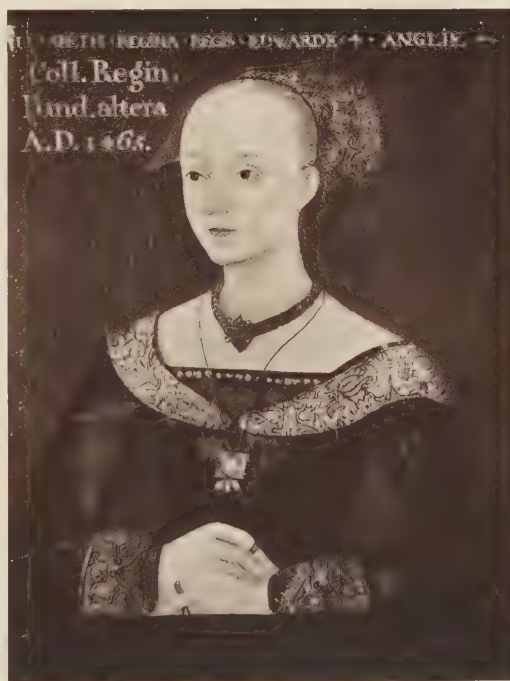 REGINA REGIS EDWARDE 4 ANGLIE
Coll. Regin.
Fund. altera
A.D. 1465.